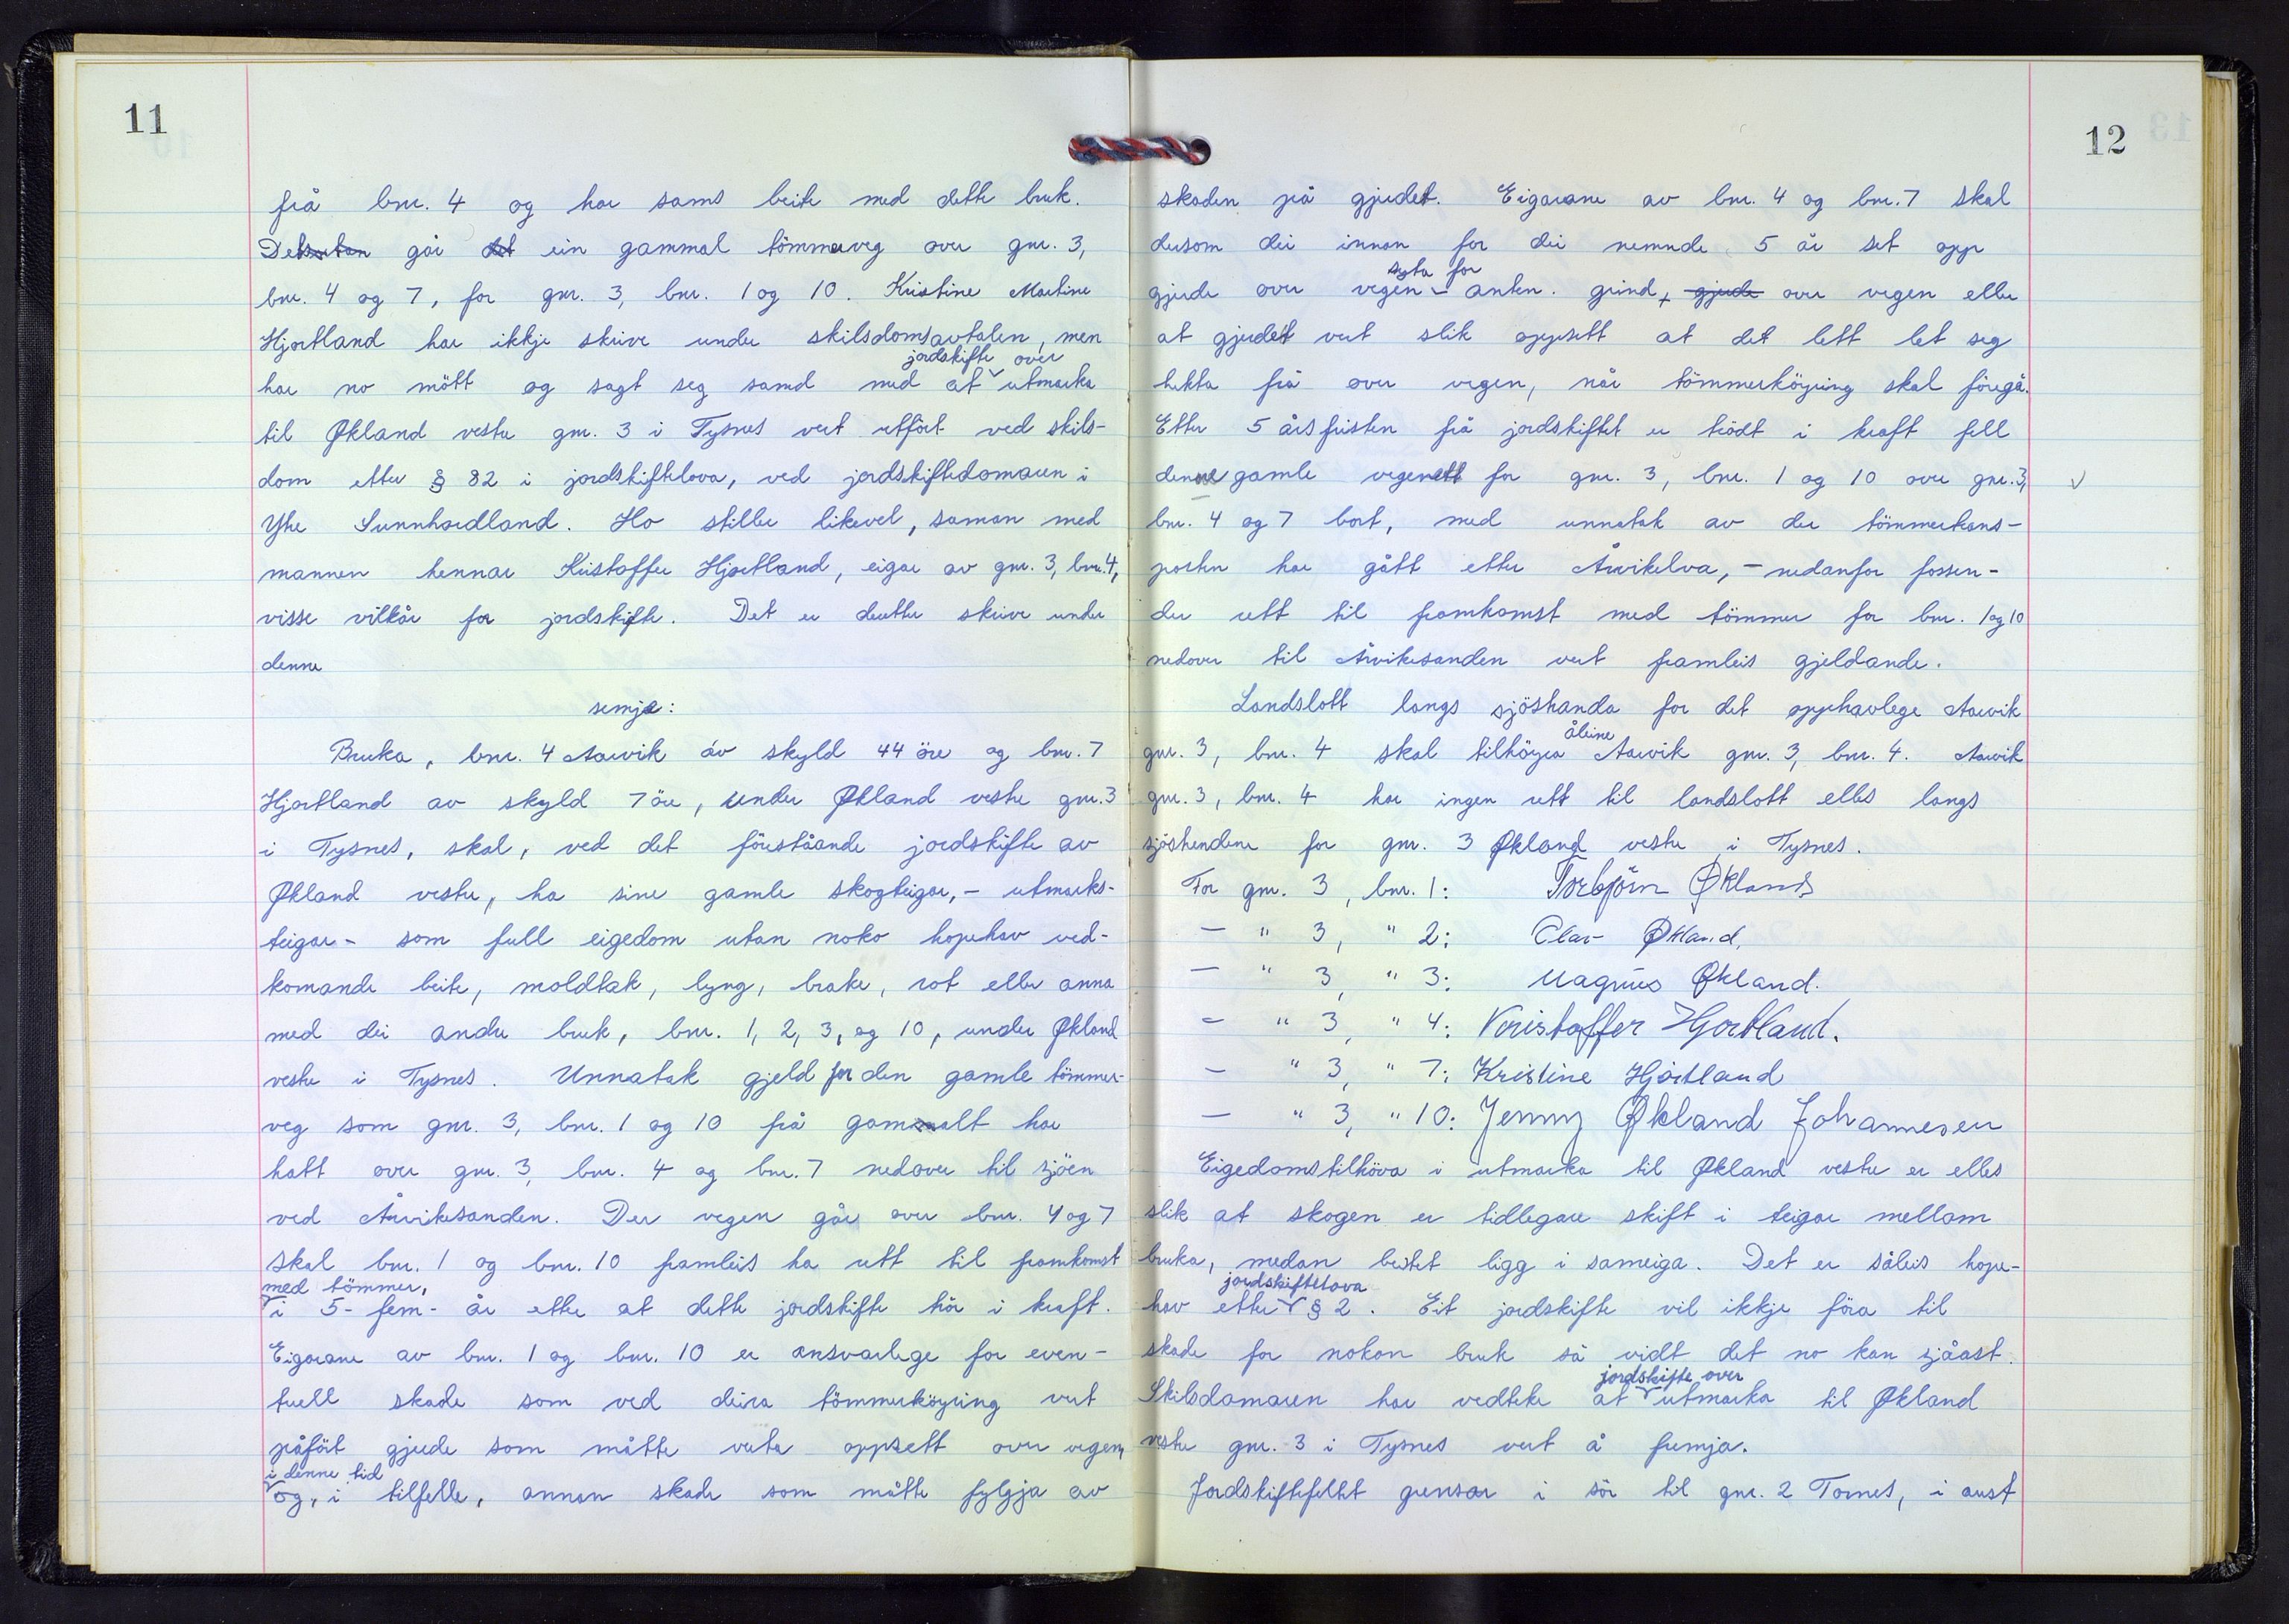 11
frå bnr. 4 og har sams beite med dette bruk.
Det går ein gammal tömmerveg over gnr. 3,
bnr. 4 og 7, for gnr. 3, bnr. 1 og 10. Kristine Martine
Hjortland har ikkje skrive under skilsdomsavtalen, men
jordskifte over
har no mött og sagt seg samd med at utmarka
til Økland vestre gnr. 3 i Tysnes vert utfört ved skils-
dom etter § 82 i jordskiftelova, ved jordskiftedomaren i
Ytre Sunnhordland. Ho stiller likevel, saman med
mannen hennar Kristoffer Hjortland, eigar av gnr. 3, bnr. 4,
visse vilkår for jordskifte. Det er deretter skrive under
denne
semje:
Bruka, bnr. 4 Aarvik av skyld 44 öre og bnr. 7
Hjortland av skyld 7 öre, under Økland vestre gnr. 3
i Tysnes, skal, ved det föreståande jordskifte av
Økland vestre, ha sine gamle skogteigar, - utmarks-
teigar - som full eigedom utan noko hopehav ved-
komande beite, moldtak, lyng, brake, rot eller anna
med dei andre bruk, bnr. 1, 2, 3, og 10, under Økland
vestre i Tysnes. Unnatak gjeld for den gamle tömmer-
veg som gnr. 3, bnr. 1 og 10 frå gammalt har
hatt over gnr. 3, bnr. 4 og bnr. 7 nedover til sjöen
ved Årvikesanden. Der vegen går over bnr. 4 og 7
skal bnr. 1 og bnr. 10 framleis ha rett til framkomst
med tömmer,
i 5 - fem - år etter at dette jordskifte trår i kraft.
Eigarane av bnr. 1 og bnr. 10 er ansvarlege for even-
tuell skade som ved deira tömmerköyring vert
påfört gjerde som måtte verta oppsett over vegen,
i denne tid
og, i tilfelle, annan skade som måtte fylgja av
12
skaden på gjerdet. Eigarane av bnr. 4 og bnr. 7 skal
dersom dei innan for dei nemnde 5 år set opp
syta for
gjerde over vegen - anten. grind, gjerde over vegen eller
at gjerdet vert slik oppsett at det lett let seg
hekta frå over vegen, når tömmerköyring skal föregå.
Etter 5 årsfristen frå jordskiftet er trödt i kraft fell
denne gamle vegrett for gnr. 3, bnr. 1 og 10 over gnr. 3,
bnr. 4 og 7 bort, med unnatak av der tömmertrans-
porten har gått etter Årvikelva, - nedanfor fossen -
der rett til framkomst med tömmer for bnr. 1 og 10
nedover til Årvikesanden vert framleis gjeldande.
Landslott langs sjöstranda for det opphavlege Aarvik
åleine
gnr. 3, bnr. 4 skal tilhöyra Aarvik gnr. 3, bnr. 4. Aarvik
gnr. 3, bnr. 4 har ingen rett til landslott elles langs
sjöstrendene for gnr. 3 Økland vestre i Tysnes.
For gnr. 3, bnr. 1: Torbjörn Økland
- " 3, " 2: Olav Økland.
- " 3, " 3: Magnus Økland.
- " 3, " 4: Kristoffer Hjortland.
- " 3, " 7: Kristine Hjortland
- " 3, " 10: Jenny Økland Johannesen
Eigedomstilhöva i utmarka til Økland vestre er elles
slik at skogen er tidlegare skift i teigar mellom
bruka, medan beitet ligg i sameige. Det er såleis hope-
jordskiftelova
hav etter § 2. Eit jordskifte vil ikkje föra til
skade for nokon bruk så vidt det no kan sjåast.
jordskifte over
Skilsdomaren har vedteke at utmarka til Økland
vestre gnr. 3 i Tysnes vert å fremja.
Jordskiftefeltet grensar i sör til gnr. 2 Tornes, i aust